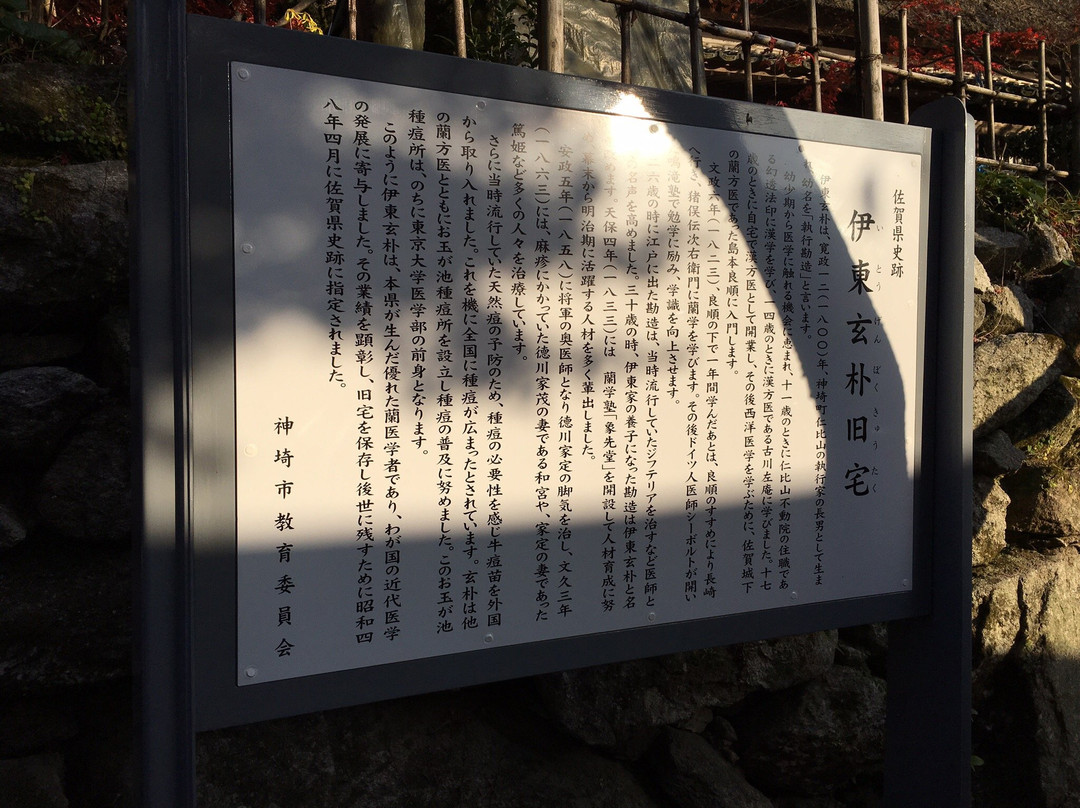 佐賀県史跡
いとうげんぼくきゅうたく
伊東玄朴旧宅
伊東玄朴は、寛政一二(一八〇〇)年、神埼町仁比山の執行家の長男として生ま
幼名を「執行勘造」と言います。
幼少期から医学に触れる機会に恵まれ、十一歳のときに仁比山不動院の住職であ
る幻造法印に漢学を学び、一四歳のときに漢方医である古川左庵に学びました。十七
歳のときに自宅で漢方医として開業し、その後西洋医学を学ぶために、佐賀城下
の蘭方医であった島本良順に入門します。
文政六年(一八二三)、良順の下で一年間学んだあとは、良順のすすめにより長崎
へ行き、猪俣伝次右衛門に蘭学を学びます。その後ドイツ人医師シーボルトが開い
鳴滝塾で勉学に励み、学識を向上させます。
二六歳の時に江戸に出た勘造は、当時流行していたジフテリアを治すなど医師と
名声を高めました。三十歳の時、伊東家の養子になった勘造は伊東玄朴と名
ます。天保四年(一八三三)には 蘭学塾「象先堂」を開設して人材育成に努
幕末から明治期に活躍する人材を多く輩出しました。
安政五年(一八五八)に将軍の奥医師となり徳川家定の脚気を治し、文久三年
(一八六三)には、麻疹にかかっていた徳川家茂の妻である和宮や、家定の妻であった
篤姫など多くの人々を治療しています。
さらに当時流行していた天然痘の予防のため、種痘の必要性を感じ牛痘苗を外国
から取り入れました。これを機に全国に種痘が広まったとされています。玄朴は他
の蘭方医とともにお玉が池種痘所を設立し種痘の普及に努めました。このお玉が池
種痘所は、のちに東京大学医学部の前身となります。
このように伊東玄朴は、本県が生んだ優れた蘭医学者であり、わが国の近代医学
の発展に寄与しました。その業績を顕彰し、旧宅を保存し後世に残すために昭和四
八年四月に佐賀県史跡に指定されました。
神埼市教育委員会